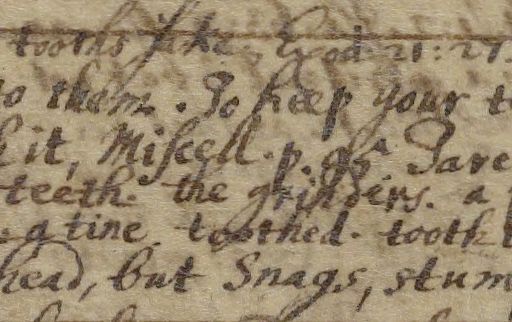 tooths sake, Exod. 21: 27.
to them. To keep your t
it, Miscell. p.
teeth. the grinders. a
a tine toothed. tooth
head, but Snags, stum